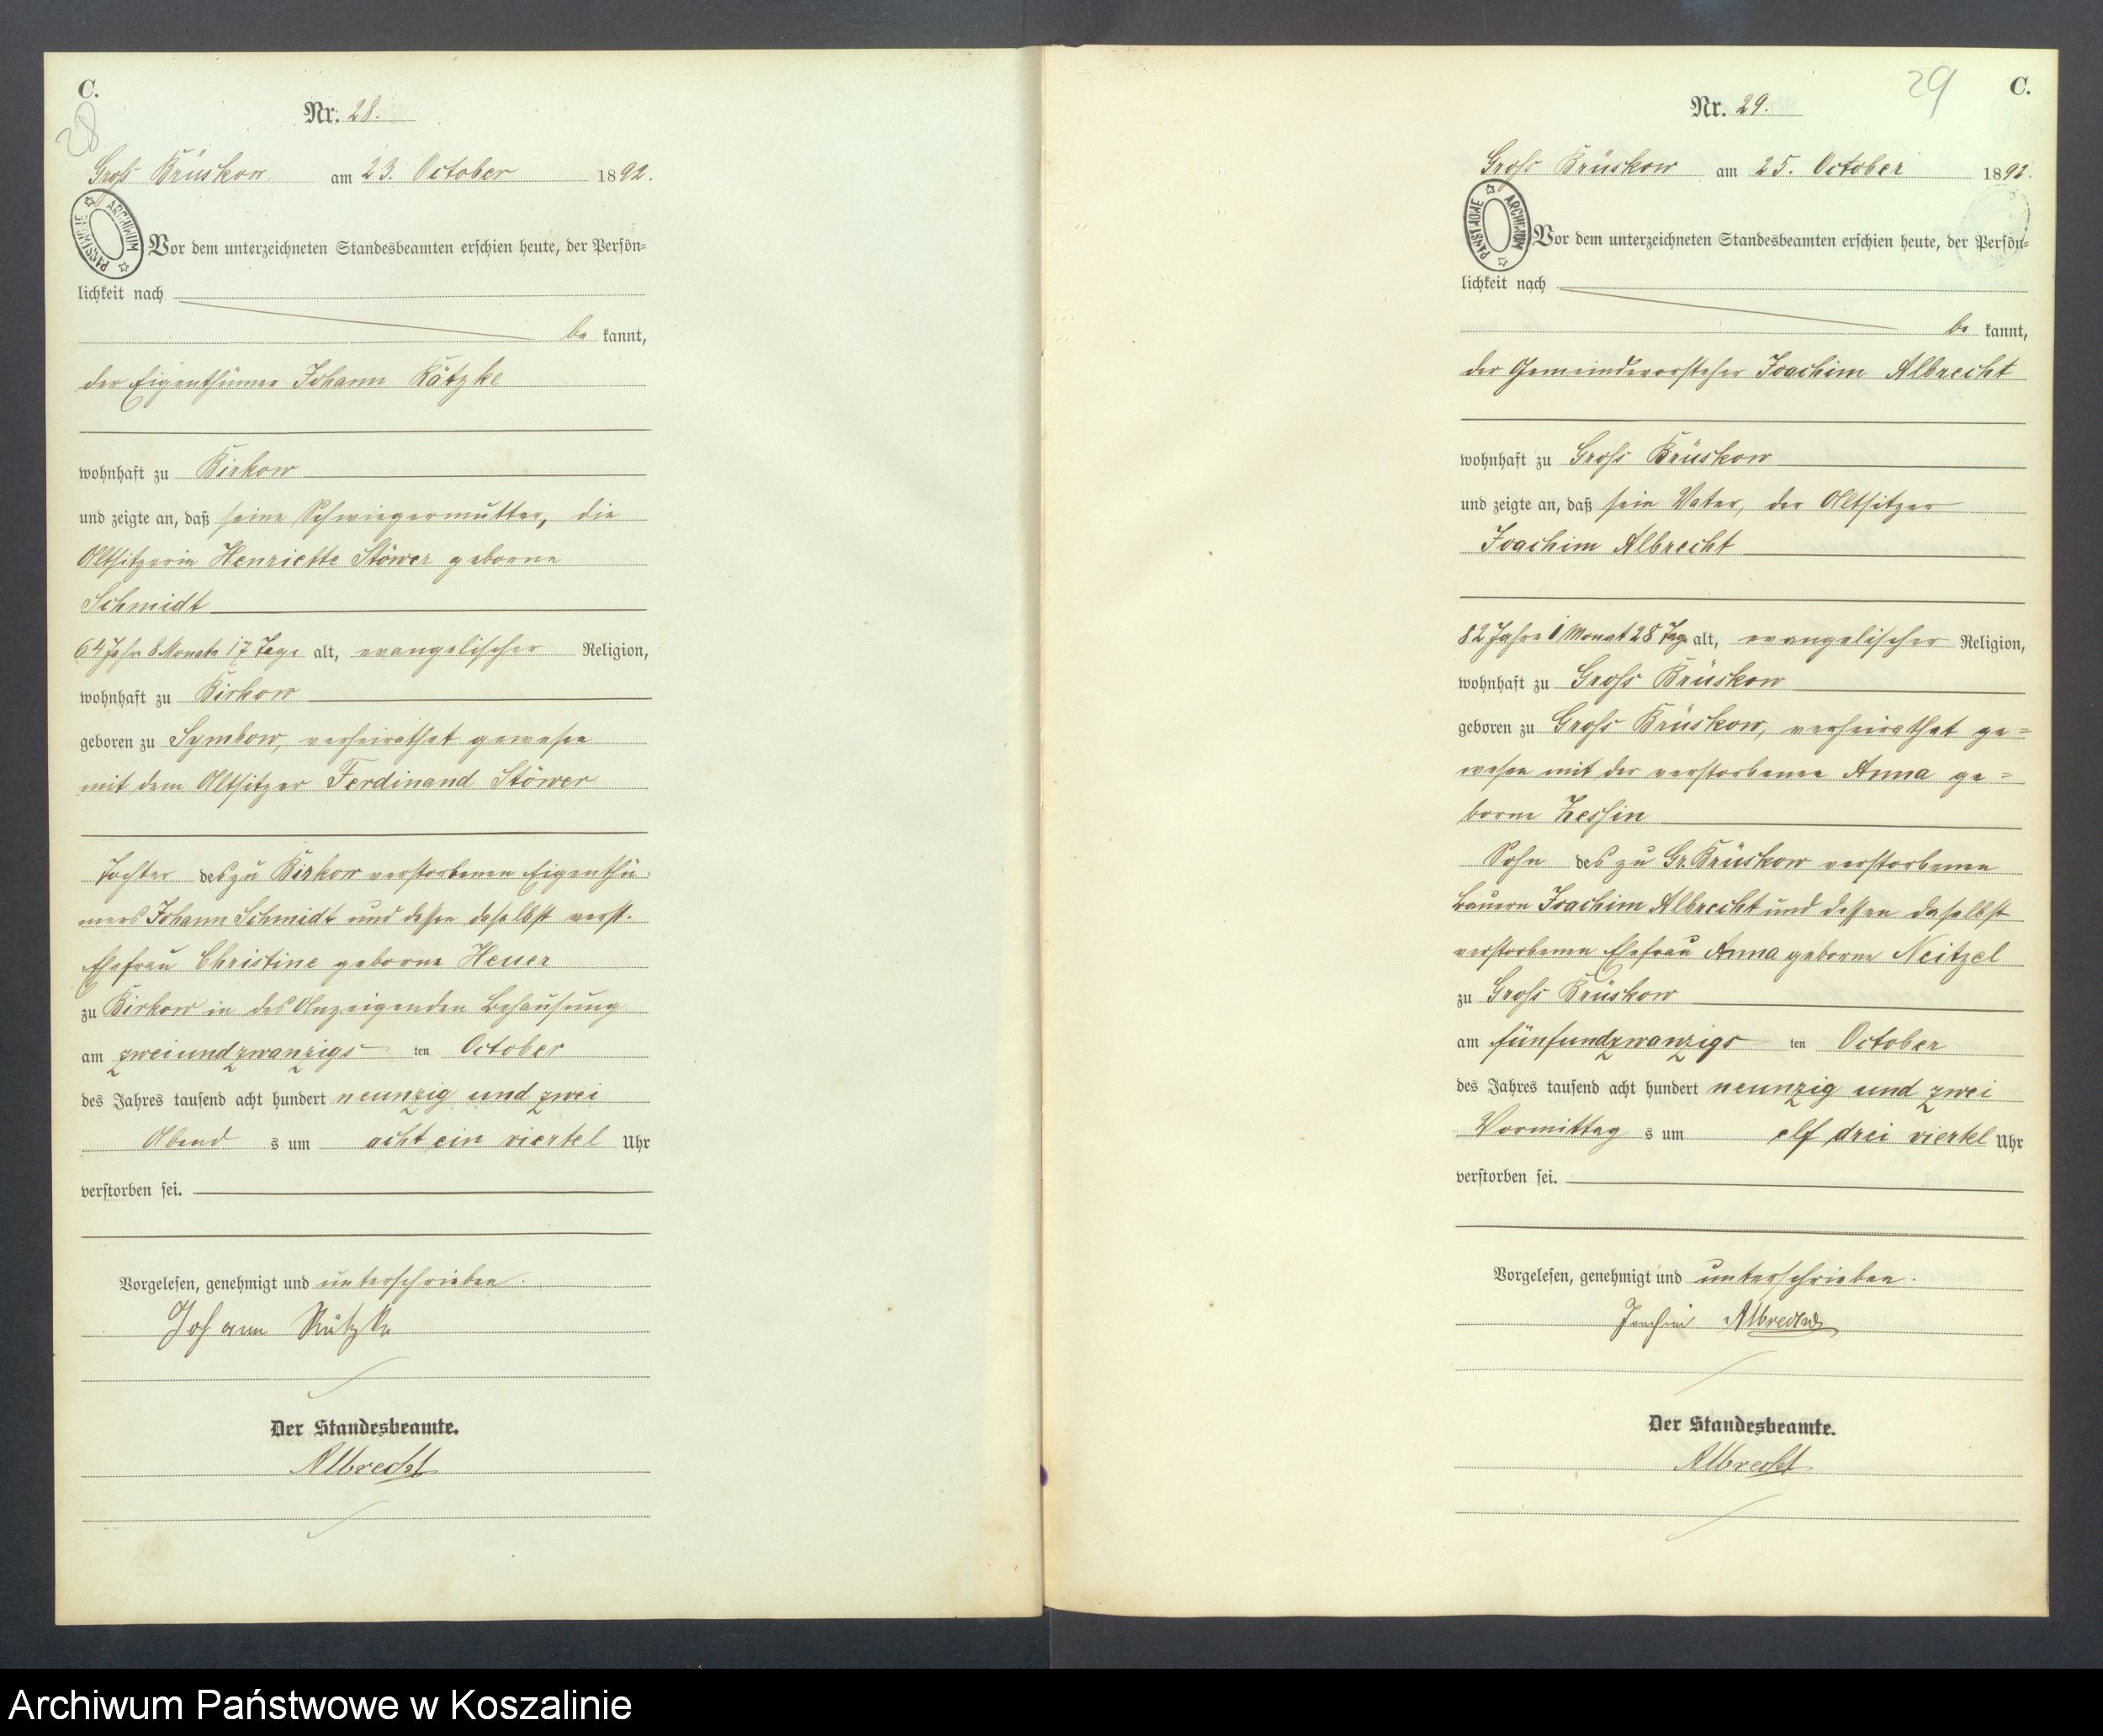 C.
28
Nr. 28.
Groß Brüskow am 23. October 1892.
ARCHIWUM PAŃSTWOWE
Vor dem unterzeichneten Standesbeamten erschien heute, der Persön=
lichkeit nach
be kannt,
der Eigenthümer Johann Kätzke
wohnhaft zu Birkow
und zeigte an, daß seine Schwiegermutter, die
Altsitzerin Henriette Stöwer geborne
Schmidt
64 Jahr 8 Monate 17 Tage alt, evangelischer Religion,
wohnhaft zu Birkow
geboren zu Symbow, verheirathet gewesen
mit dem Altsitzer Ferdinand Stöwer
Tochter des zu Birkow verstorbenen Eigenthü-
mers Johann Schmidt und dessen daselbst verst.
Ehefrau Christine geborne Heuer
zu Birkow in des Anzeigenden Behausung
am zweiundzwanzigs ten October
des Jahres tausend acht hundert neunzig und zwei
Abend s um acht ein viertel Uhr
verstorben sei.
Vorgelesen, genehmigt und unterschrieben.
Johann Kätzke
Der Standesbeamte.
Albrecht
29
C.
Nr. 29.
Groß Brüskow am 25. October 1892.
ARCHIWUM PAŃSTWOWE
Vor dem unterzeichneten Standesbeamten erschien heute, der Persön=
lichkeit nach
be kannt,
der Gemeindevorsteher Joachim Albrecht
wohnhaft zu Groß Brüskow
und zeigte an, daß sein Vater, der Altsitzer
Joachim Albrecht
82 Jahre 1 Monat 28 Tage alt, evangelischer Religion,
wohnhaft zu Groß Brüskow
geboren zu Groß Brüskow, verheirathet ge=
wesen mit der verstorbenen Anna ge=
borne Zessin
Sohn des zu Gr. Brüskow verstorbenen
Bauern Joachim Albrecht und dessen daselbst
verstorbenen Ehefrau Anna geborne Neitzel
zu Groß Brüskow
am fünfundzwanzigs ten October
des Jahres tausend acht hundert neunzig und zwei
Vormittag s um elf drei viertel Uhr
verstorben sei.
Vorgelesen, genehmigt und unterschrieben.
Joachim Albrecht
Der Standesbeamte.
Albrecht
Archiwum Państwowe w Koszalinie